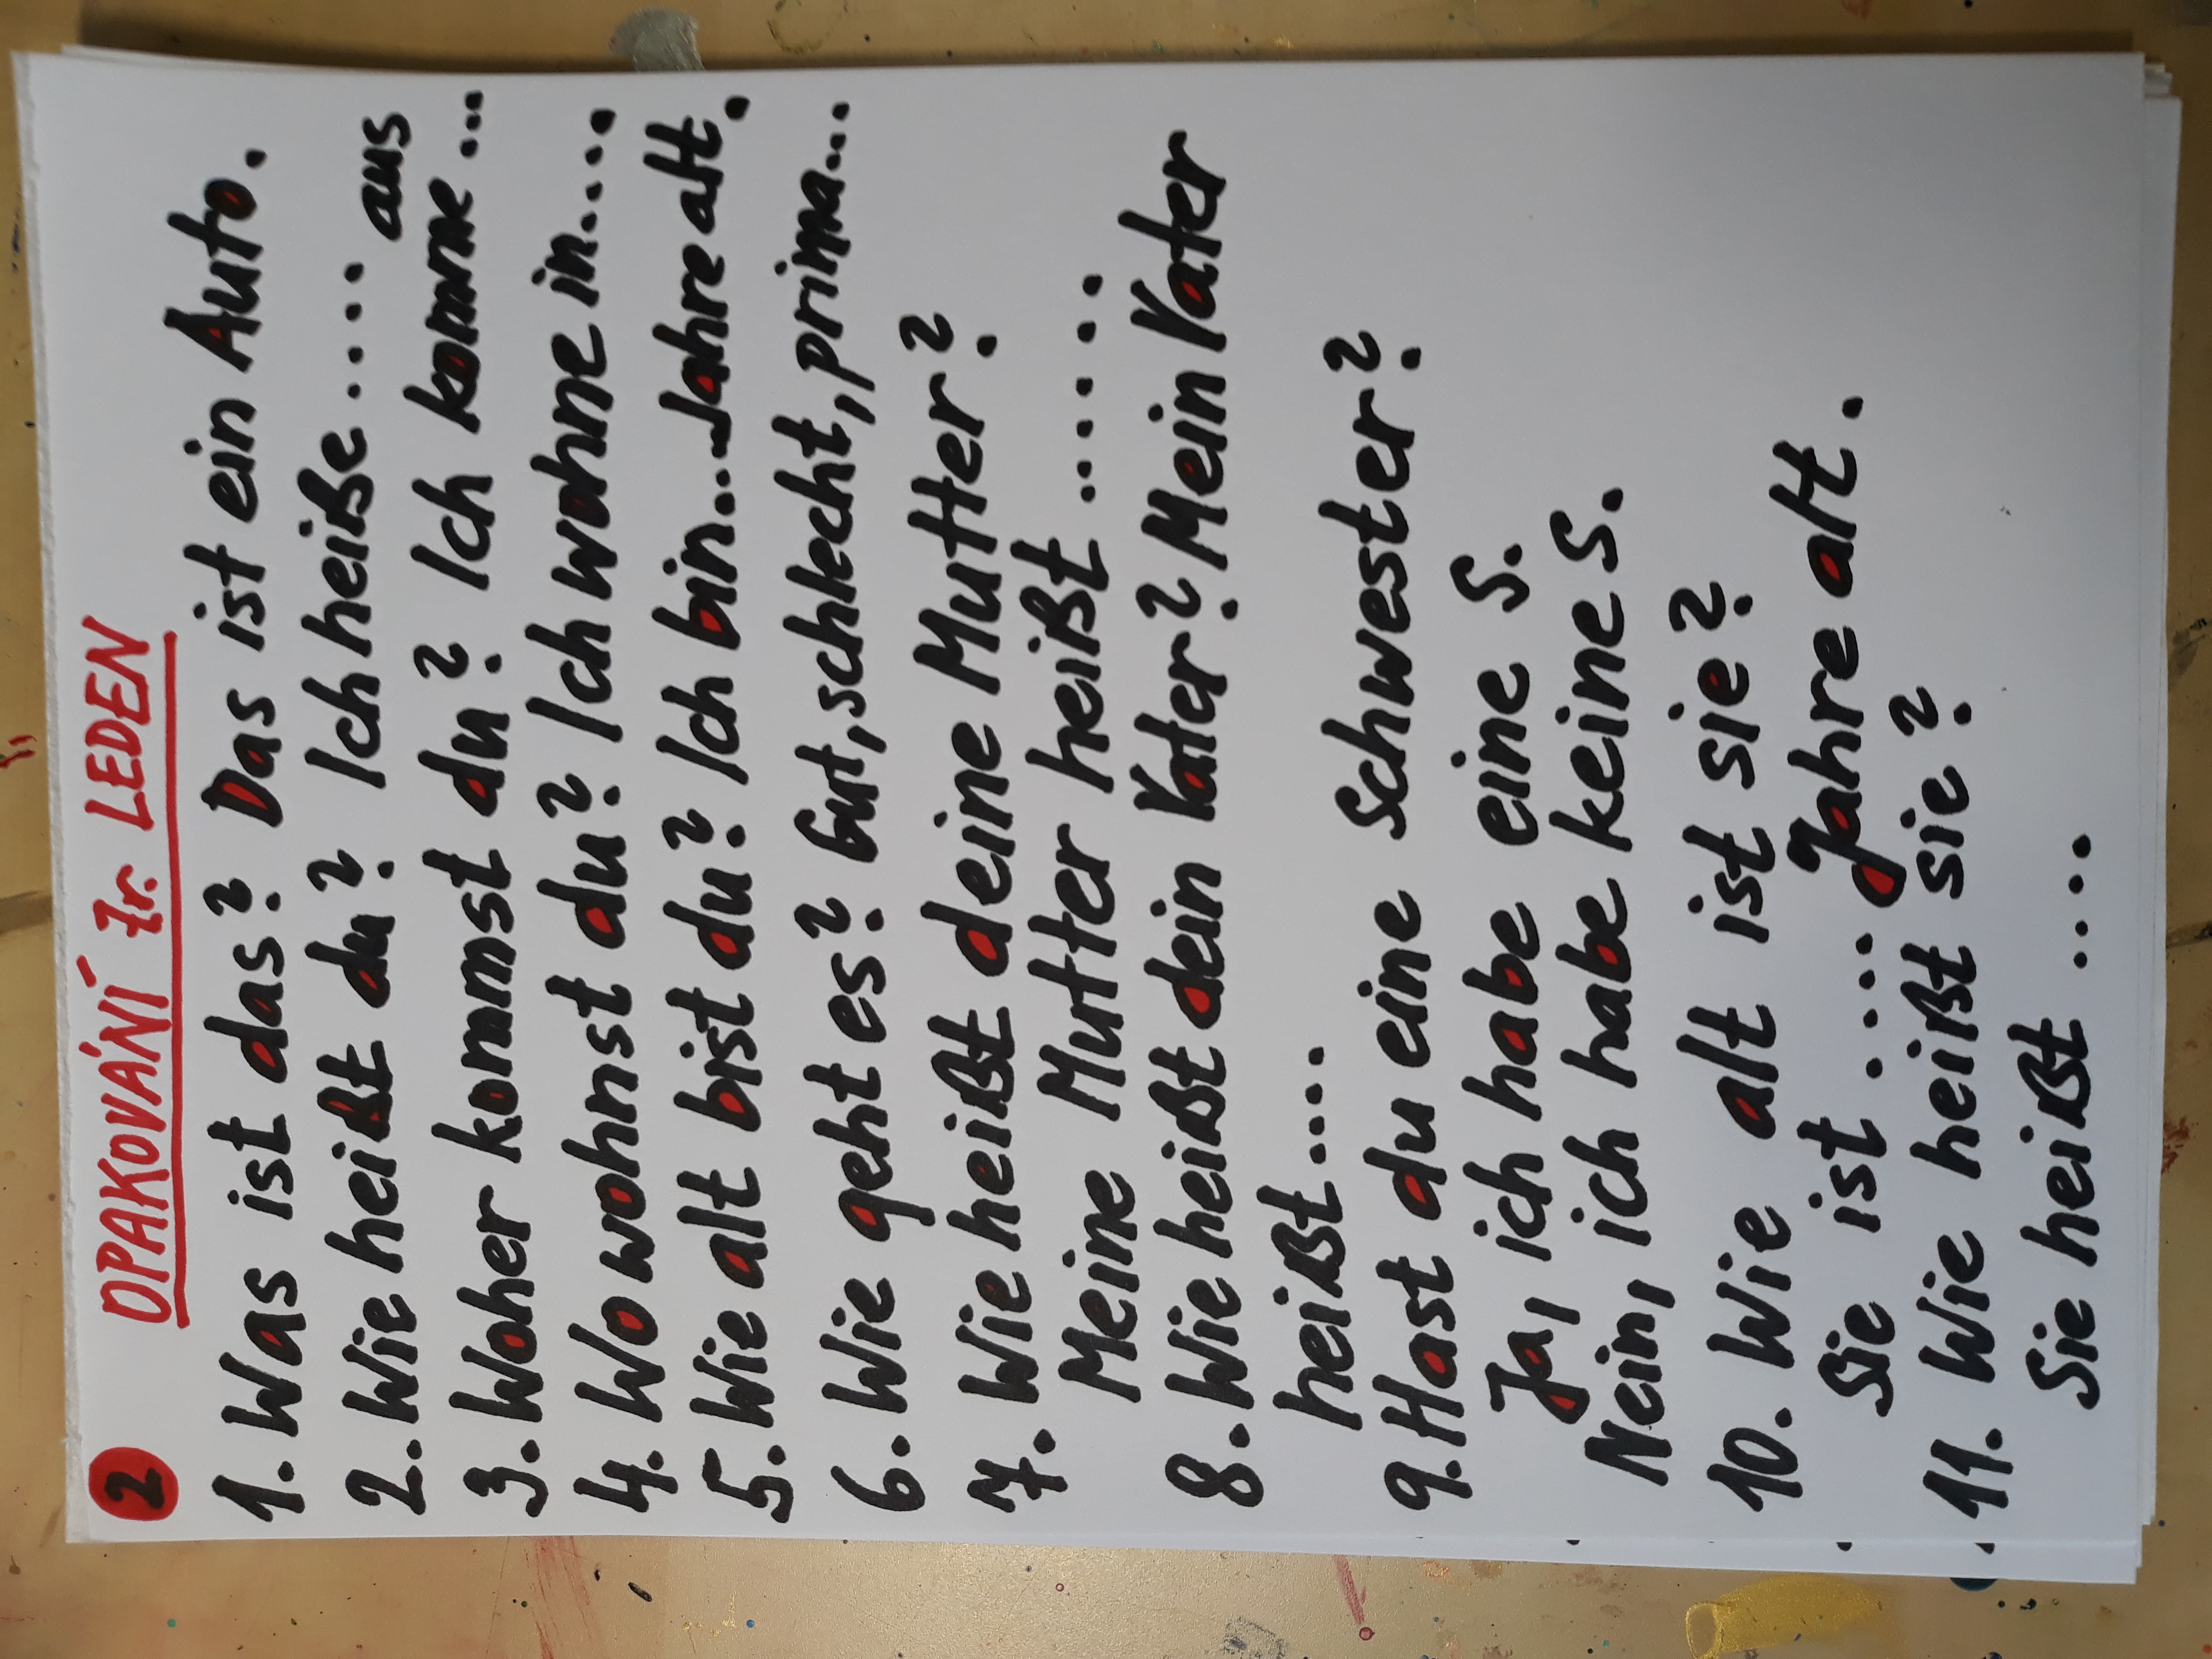 2 OPAKOVÁNÍ 7r. LEDEN
1. Was ist das? Das ist ein Auto.
2. Wie heißt du? Ich heiße ....
aus
3. Woher kommst du? Ich komme ...
4. Wo wohnst du? Ich wohne in....
5. Wie alt bist du? Ich bin... Jahre alt.
6. Wie geht es? Gut, schlecht, prima...
7. Wie heißt deine Mutter?
Meine Mutter heißt .....
8. Wie heißt dein Vater? Mein Vater
heißt ....
9. Hast du eine Schwester?
Ja, ich habe eine S.
Nein, ich habe keine S.
10. Wie alt ist sie?
Sie ist .... Jahre alt.
11. Wie heißt sie?
Sie heißt ....